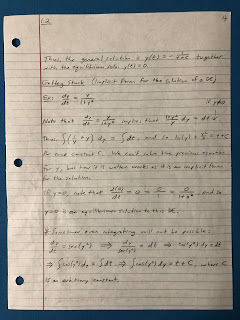 1.2 4
Thus, the general solution is y(t) = -1/(t+c) together
with the equilibrium soln y(t) = 0.
Getting Stuck (Implicit Form for the solution of a DE)
Ex: dy/dt = y/(1+y²)
if y≠0
Note that dy/dt = y/(1+y²) implies that (1+y²)/y dy = dt
Thus, ∫(1/y + y) dy = ∫dt, and so ln|y| + y²/2 = t + C
for some constant C. We can't solve the previous equation
for y, but how it is written works as an implicit form
for the solution.
If y=0, note that d(0)/dt = 0 = 0/1 = 0/(1+0²), and so
y=0 is an equilibrium solution to this DE.
Sometimes even integrating will not be possible:
dy/dt = sec(y²) ⇒ dy/sec(y²) = dt ⇒ cos(y²) dy = dt
⇒ ∫cos(y²) dy = ∫dt ⇒ ∫cos(y²) dy = t + C, where C
is an arbitrary constant.